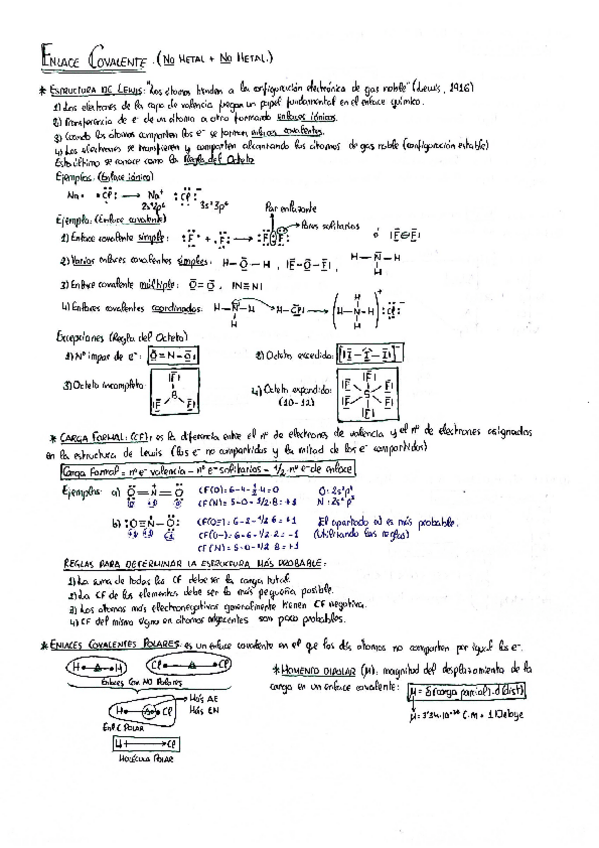 ENLACE COVALENTE. (NO METAL + NO METAL.)
* ESTRUCTURA DE LEWIS: "Los átomos tienden a la configuración electrónica de gas noble" (Lewis, 1916)
1) Los electrones de la capa de valencia juegan un papel fundamental en el enlace químico.
2) Transferencia de e⁻ de un átomo a otro formando enlaces iónicos.
3) Cuando los átomos comparten los e⁻ se forman enlaces covalentes.
4) Los electrones se transfieren y comparten alcanzando los átomos de gas noble (configuración estable)
Esto último se conoce como la Regla del Octeto
Ejemplos: (Enlace iónico)
Na· + ·Cl: → Na⁺ :Cl:⁻
2s²2p⁶ 3s²3p⁶
Par enlazante
Ejemplo: (Enlace covalente)
Pares solitarios
1) Enlace covalente simple: :F· + ·F: → :F:F: ó |F-F|
2) Varios enlaces covalentes simples: H-O-H, |F-O-F|, H-N-H
H
3) Enlace covalente múltiple: O=O, |N≡N|
4) Enlaces covalentes coordinados: H-N-H H-Cl: → (H-N-H)⁺ :Cl:⁻
H H H
Excepciones (Regla del Octeto)
1) Nº impar de e⁻: O=N-O| 2) Octeto excedido: [|I-I-I|]⁻
3) Octeto incompleto: |F| B |F F| 4) Octeto expandido: |F| |F F| S |F F| |F|
(10-12)
* CARGA FORMAL: (CF): es la diferencia entre el nº de electrones de valencia y el nº de electrones asignados
en la estructura de Lewis (los e⁻ no compartidos y la mitad de los e⁻ compartidos)
Carga Formal = nº e⁻ valencia - nº e⁻ solitarios - 1/2 · nº e⁻ de enlace
Ejemplos: a) O=N=O CF(O)=6-4-1/2·4=0 O: 2s²p⁴
0 +1 0 CF(N)=5-0-1/2·8=+1 N: 2s²p³
b) :O≡N-O: CF(O≡)=6-2-1/2·6=+1 El apartado a) es más probable.
+1 +1 -1 CF(O-)=6-6-1/2·2=-1 (Utilizando las reglas)
CF(N)=5-0-1/2·8=+1
REGLAS PARA DETERMINAR LA ESTRUCTURA MÁS PROBABLE:
1) La suma de todas las CF debe ser la carga total.
2) La CF de los elementos debe ser lo más pequeña posible.
3) Los átomos más electronegativos generalmente tienen CF negativa.
4) CF del mismo signo en átomos adyacentes son poco probables.
* ENLACES COVALENTES POLARES: es un enlace covalente en el que los dos átomos no comparten por igual los e⁻.
H H Cl Cl
Enlaces Cov. NO Polares
* MOMENTO DIPOLAR (μ): magnitud del desplazamiento de la
carga en un enlace covalente: μ = δ(carga parcial)·d(dist)
H Cl Más AE
Más EN
Enl C POLAR
μ=3'34·10⁻³⁰ C·m = 1 Debye
H → Cl
MOLÉCULA POLAR